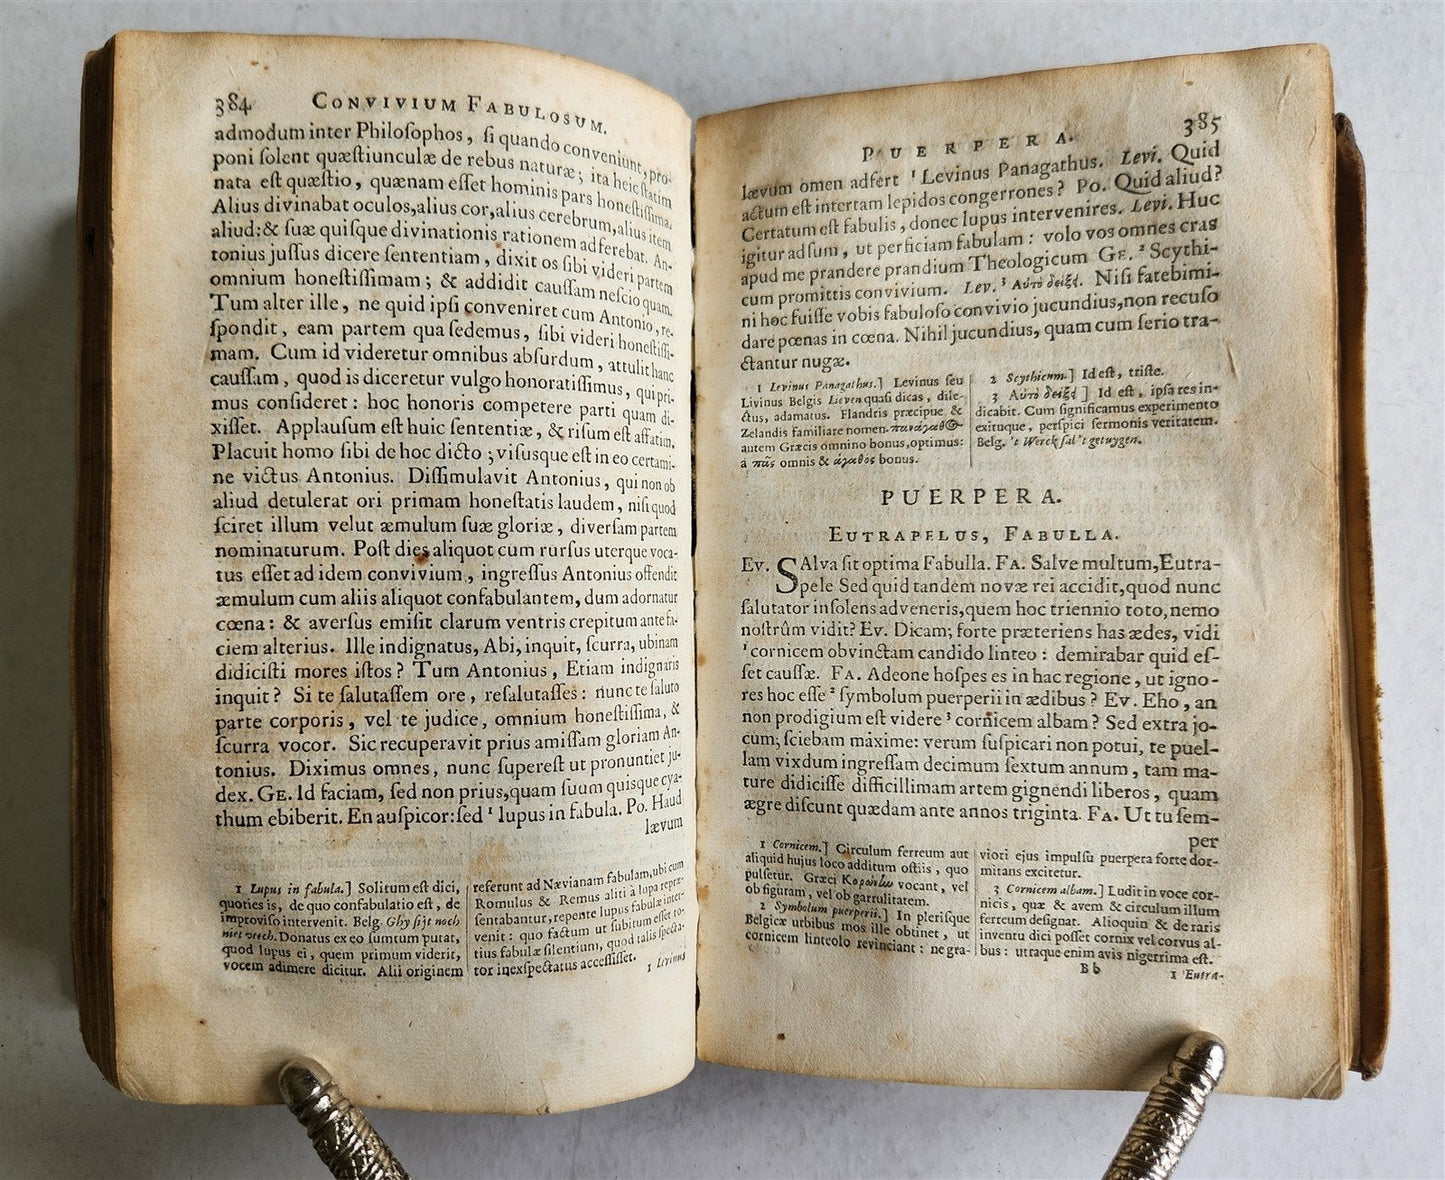 384 CONVIVIUM FABULOSUM.
admodum inter Philoſophos, ſi quando conveniunt, pro-
poni ſolent quæſtiunculæ de rebus naturæ; ita heic ſtatim
nata eſt quæſtio, quænam eſſet hominis pars honeſtiſſima.
Alius divinabat oculos, alius cor, alius cerebrum, alius item
aliud: & ſuæ quiſque divinationis rationem adferebat. An-
tonius juſſus dicere ſententiam, dixit os ſibi videri partem
omnium honeſtiſſimam; & addidit cauſſam neſcio quam.
Tum alter ille, ne quid ipſi conveniret cum Antonio, re-
ſpondit, eam partem qua ſedemus, ſibi videri honeſtiſſi-
mam. Cum id videretur omnibus abſurdum, attulit hanc
cauſſam, quod is diceretur vulgo honoratiſſimus, qui pri-
mus conſideret: hoc honoris competere parti quam di-
xiſſet. Applauſum eſt huic ſententiæ, & riſum eſt affatim.
Placuit homo ſibi de hoc dicto; viſusque eſt in eo certami-
ne victus Antonius. Diſſimulavit Antonius, qui non ob
aliud detulerat ori primam honeſtatis laudem, niſi quod
ſciret illum velut æmulum ſuæ gloriæ, diverſam partem
nominaturum. Poſt dies aliquot cum rurſus uterque voca-
tus eſſet ad idem convivium, ingreſſus Antonius offendit
æmulum cum aliis aliquot confabulantem, dum adornatur
cœna: & averſus emiſit clarum ventris crepitum ante fa-
ciem alterius. Ille indignatus, Abi, inquit, ſcurra, ubinam
didiciſti mores iſtos? Tum Antonius, Etiam indignaris
inquit? Si te ſalutaſſem ore, reſalutaſſes: nunc te ſaluto
parte corporis, vel te judice, omnium honeſtiſſima, &
ſcurra vocor. Sic recuperavit prius amiſſam gloriam An-
tonius. Diximus omnes, nunc ſupereſt ut pronuntiet ju-
dex. GE. Id faciam, ſed non prius, quam ſuum quisque cya-
thum ebiberit. En auſpicor: ſed ¹ lupus in fabula. Po. Haud
lævum
1 Lupus in fabula.] Solitum eſt dici,
quoties is, de quo confabulatio eſt, de
improviſo intervenit. Belg. Ghy ſijt noch
niet veech. Donatus ex eo ſumtum putat,
quod lupus ei, quem primum viderit,
vocem adimere dicitur. Alii originem
referunt ad Nævianam fabulam, ubi cum
Romulus & Remus aliti à lupa repræ-
ſentabantur, repente lupus fabulæ inter-
venit: quo factum ut ſubitum eſſet to-
tius fabulæ ſilentium, quod talis ſpecta-
tor inexſpectatus acceſſiſſet.
1 Levinus
PUERPERA. 385
lævum omen adfert ¹ Levinus Panagathus. Levi. Quid
actum eſt inter tam lepidos congerrones? Po. Quid aliud?
Certatum eſt fabulis, donec lupus intervenires. Levi. Huc
igitur adſum, ut perficiam fabulam: volo vos omnes cras
apud me prandere prandium Theologicum GE. ² Scythi-
cum promittis convivium. Lev. ³ Αὐτὸ δείξει. Niſi fatebimi-
ni hoc fuiſſe vobis fabuloſo convivio jucundius, non recuſo
dare pœnas in cœna. Nihil jucundius, quam cum ſerio tra-
ctantur nugæ.
1 Levinus Panagathus.] Levinus ſeu
Livinus Belgis Lieven quaſi dicas, dile-
ctus, adamatus. Flandris præcipue &
Zelandis familiare nomen. πανάγαθος
autem Græcis omnino bonus, optimus:
à πᾶς omnis & ἀγαθος bonus.
2 Scythicum.] Id eſt, triſte.
3 Αὐτὸ δείξει ] Id eſt, ipſa res in-
dicabit. Cum ſignificamus experimento
exituque, perſpici ſermonis veritatem.
Belg. 't Werck ſal't getuygen.
PUERPERA.
EUTRAPELUS, FABULLA.
EV. SAlva ſit optima Fabulla. FA. Salve multum, Eutra-
pele Sed quid tandem novæ rei accidit, quod nunc
ſalutator inſolens adveneris, quem hoc triennio toto, nemo
noſtrûm vidit? EV. Dicam; forte præteriens has ædes, vidi
¹ cornicem obvinctam candido linteo: demirabar quid eſ-
ſet cauſſæ. FA. Adeone hoſpes es in hac regione, ut igno-
res hoc eſſe ² ſymbolum puerperii in ædibus? EV. Eho, an
non prodigium eſt videre ³ cornicem albam? Sed extra jo-
cum, ſciebam maxime: verum ſuſpicari non potui, te puel-
lam vixdum ingreſſam decimum ſextum annum, tam ma-
ture didiciſſe difficillimam artem gignendi liberos, quam
ægre diſcunt quædam ante annos triginta. FA. Ut tu ſem-
per
1 Cornicem.] Circulum ferreum aut
aliquid hujus loco additum oſtiis, quo
pulſetur. Græci Κορώνην vocant, vel
ob figuram, vel ob garrulitatem.
2 Symbolum puerperii.] In pleriſque
Belgicæ urbibus mos ille obtinet, ut
cornicem linteolo revinciant: ne gra-
viori ejus impulſu puerpera forte dor-
mitans excitetur.
3 Cornicem albam.] Ludit in voce cor-
nicis, quæ & avem & circulum illum
ferreum deſignat. Alioquin & de raris
inventu dici poſſet cornix vel corvus al-
bus: utraque enim avis nigerrima eſt.
Bb
1 Eutra-